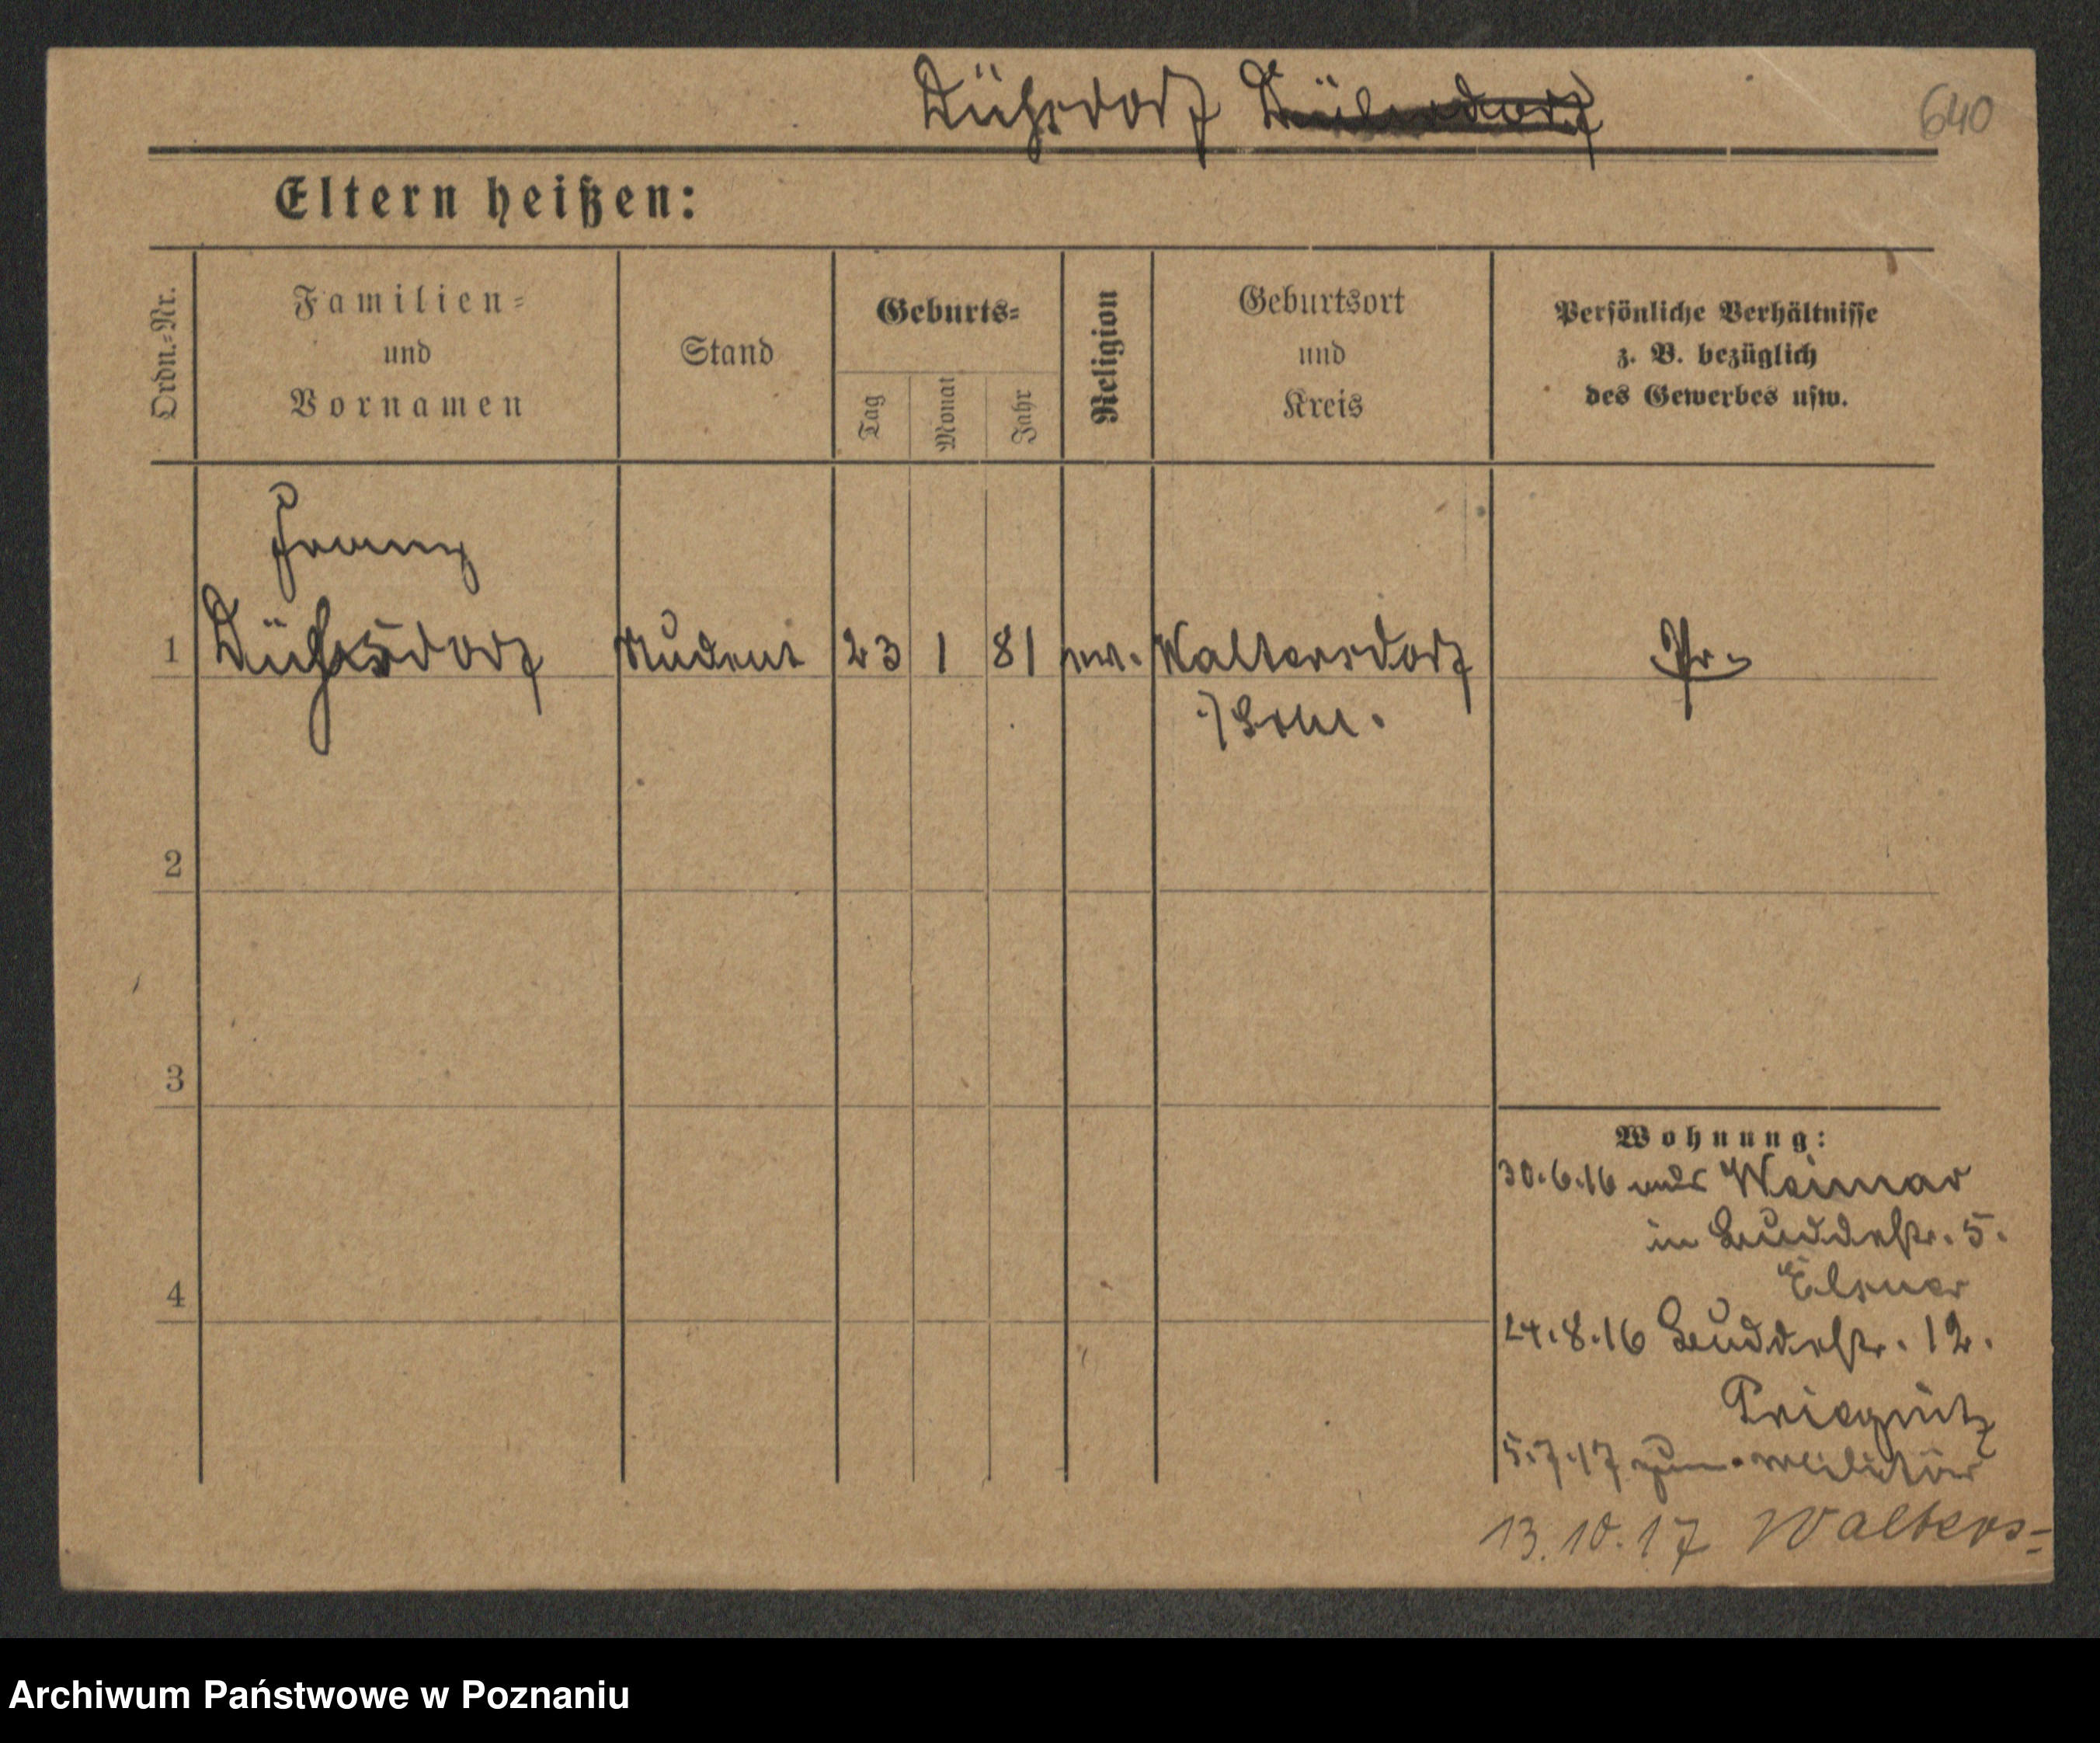 Dührsdorf
640
Eltern heißen:
Ordn.=Nr.
Familien=
und
Vornamen
Stand
Geburts=
Tag
Monat
Jahr
Religion
Geburtsort
und
Kreis
Persönliche Verhältnisse
z. B. bezüglich
des Gewerbes usw.
Franz
1 Dührsdorf Student 23 1 81 ev. Waltersdorf Pr.
2
3
Wohnung:
30.6.16 aus Weimar
in Buddestr. 5.
Elsner
4
24.8.16 Buddestr. 12.
Priegnitz
5.7.17 zum Militär
13.10.17 Walters=
Archiwum Państwowe w Poznaniu